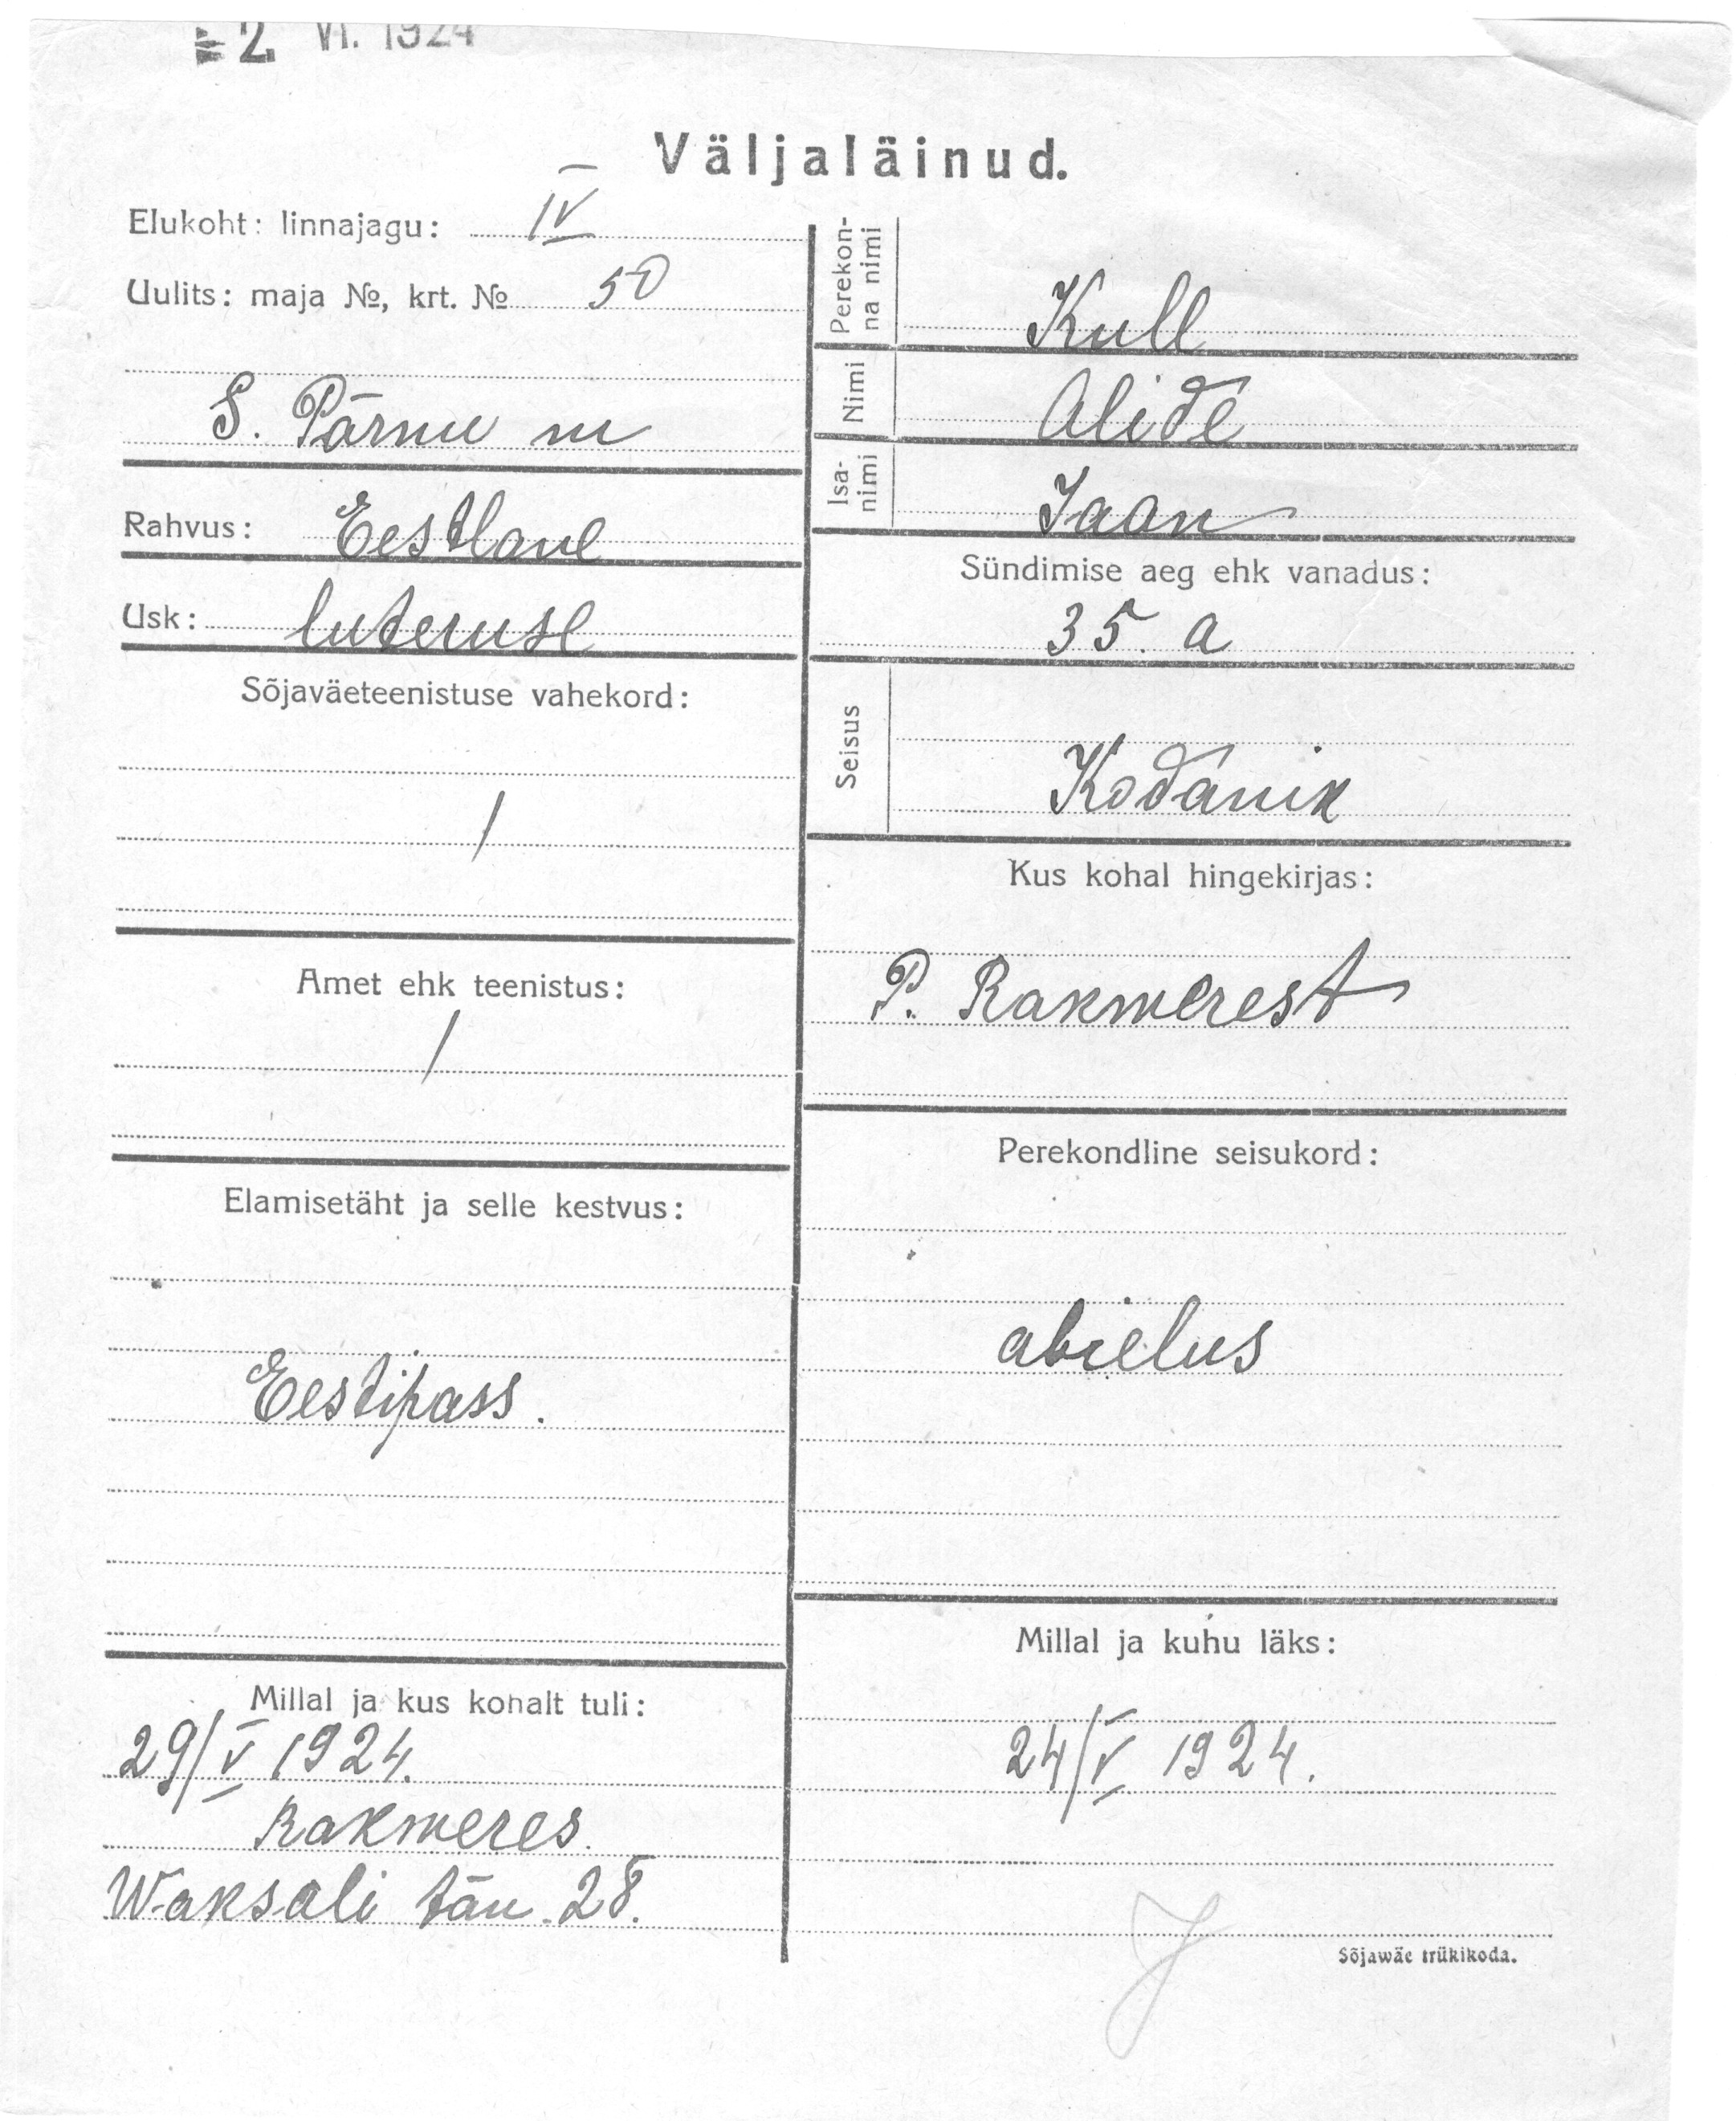 2 VI. 1924
Väljaläinud.
Elukoht: linnajagu: IV
Uulits: maja №, krt. № 50
S. Pärnu m
Rahvus: Eestlane
Usk: luteruse
Sõjaväeteenistuse vahekord:
/
Amet ehk teenistus:
/
Elamisetäht ja selle kestvus:
Eestipass.
Millal ja kus kohalt tuli:
29/V 1924.
Rakweres
Waksali tän. 28.
Perekon-
na nimi
Kull
Nimi Alide
Isa-
nimi
Jaan
Sündimise aeg ehk vanadus:
35. a
Seisus
Kodanik
Kus kohal hingekirjas:
P. Rakwerest
Perekondline seisukord:
abielus
Millal ja kuhu läks:
24/V 1924.
Sõjawäe trükikoda.